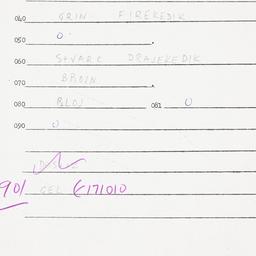 040 GRIN FIREKEDIK
050 0
060 SEVARC DRAJEKEDIK
070 BROIN
080 BLOJ 081 0
090 0
901 GEL €171010